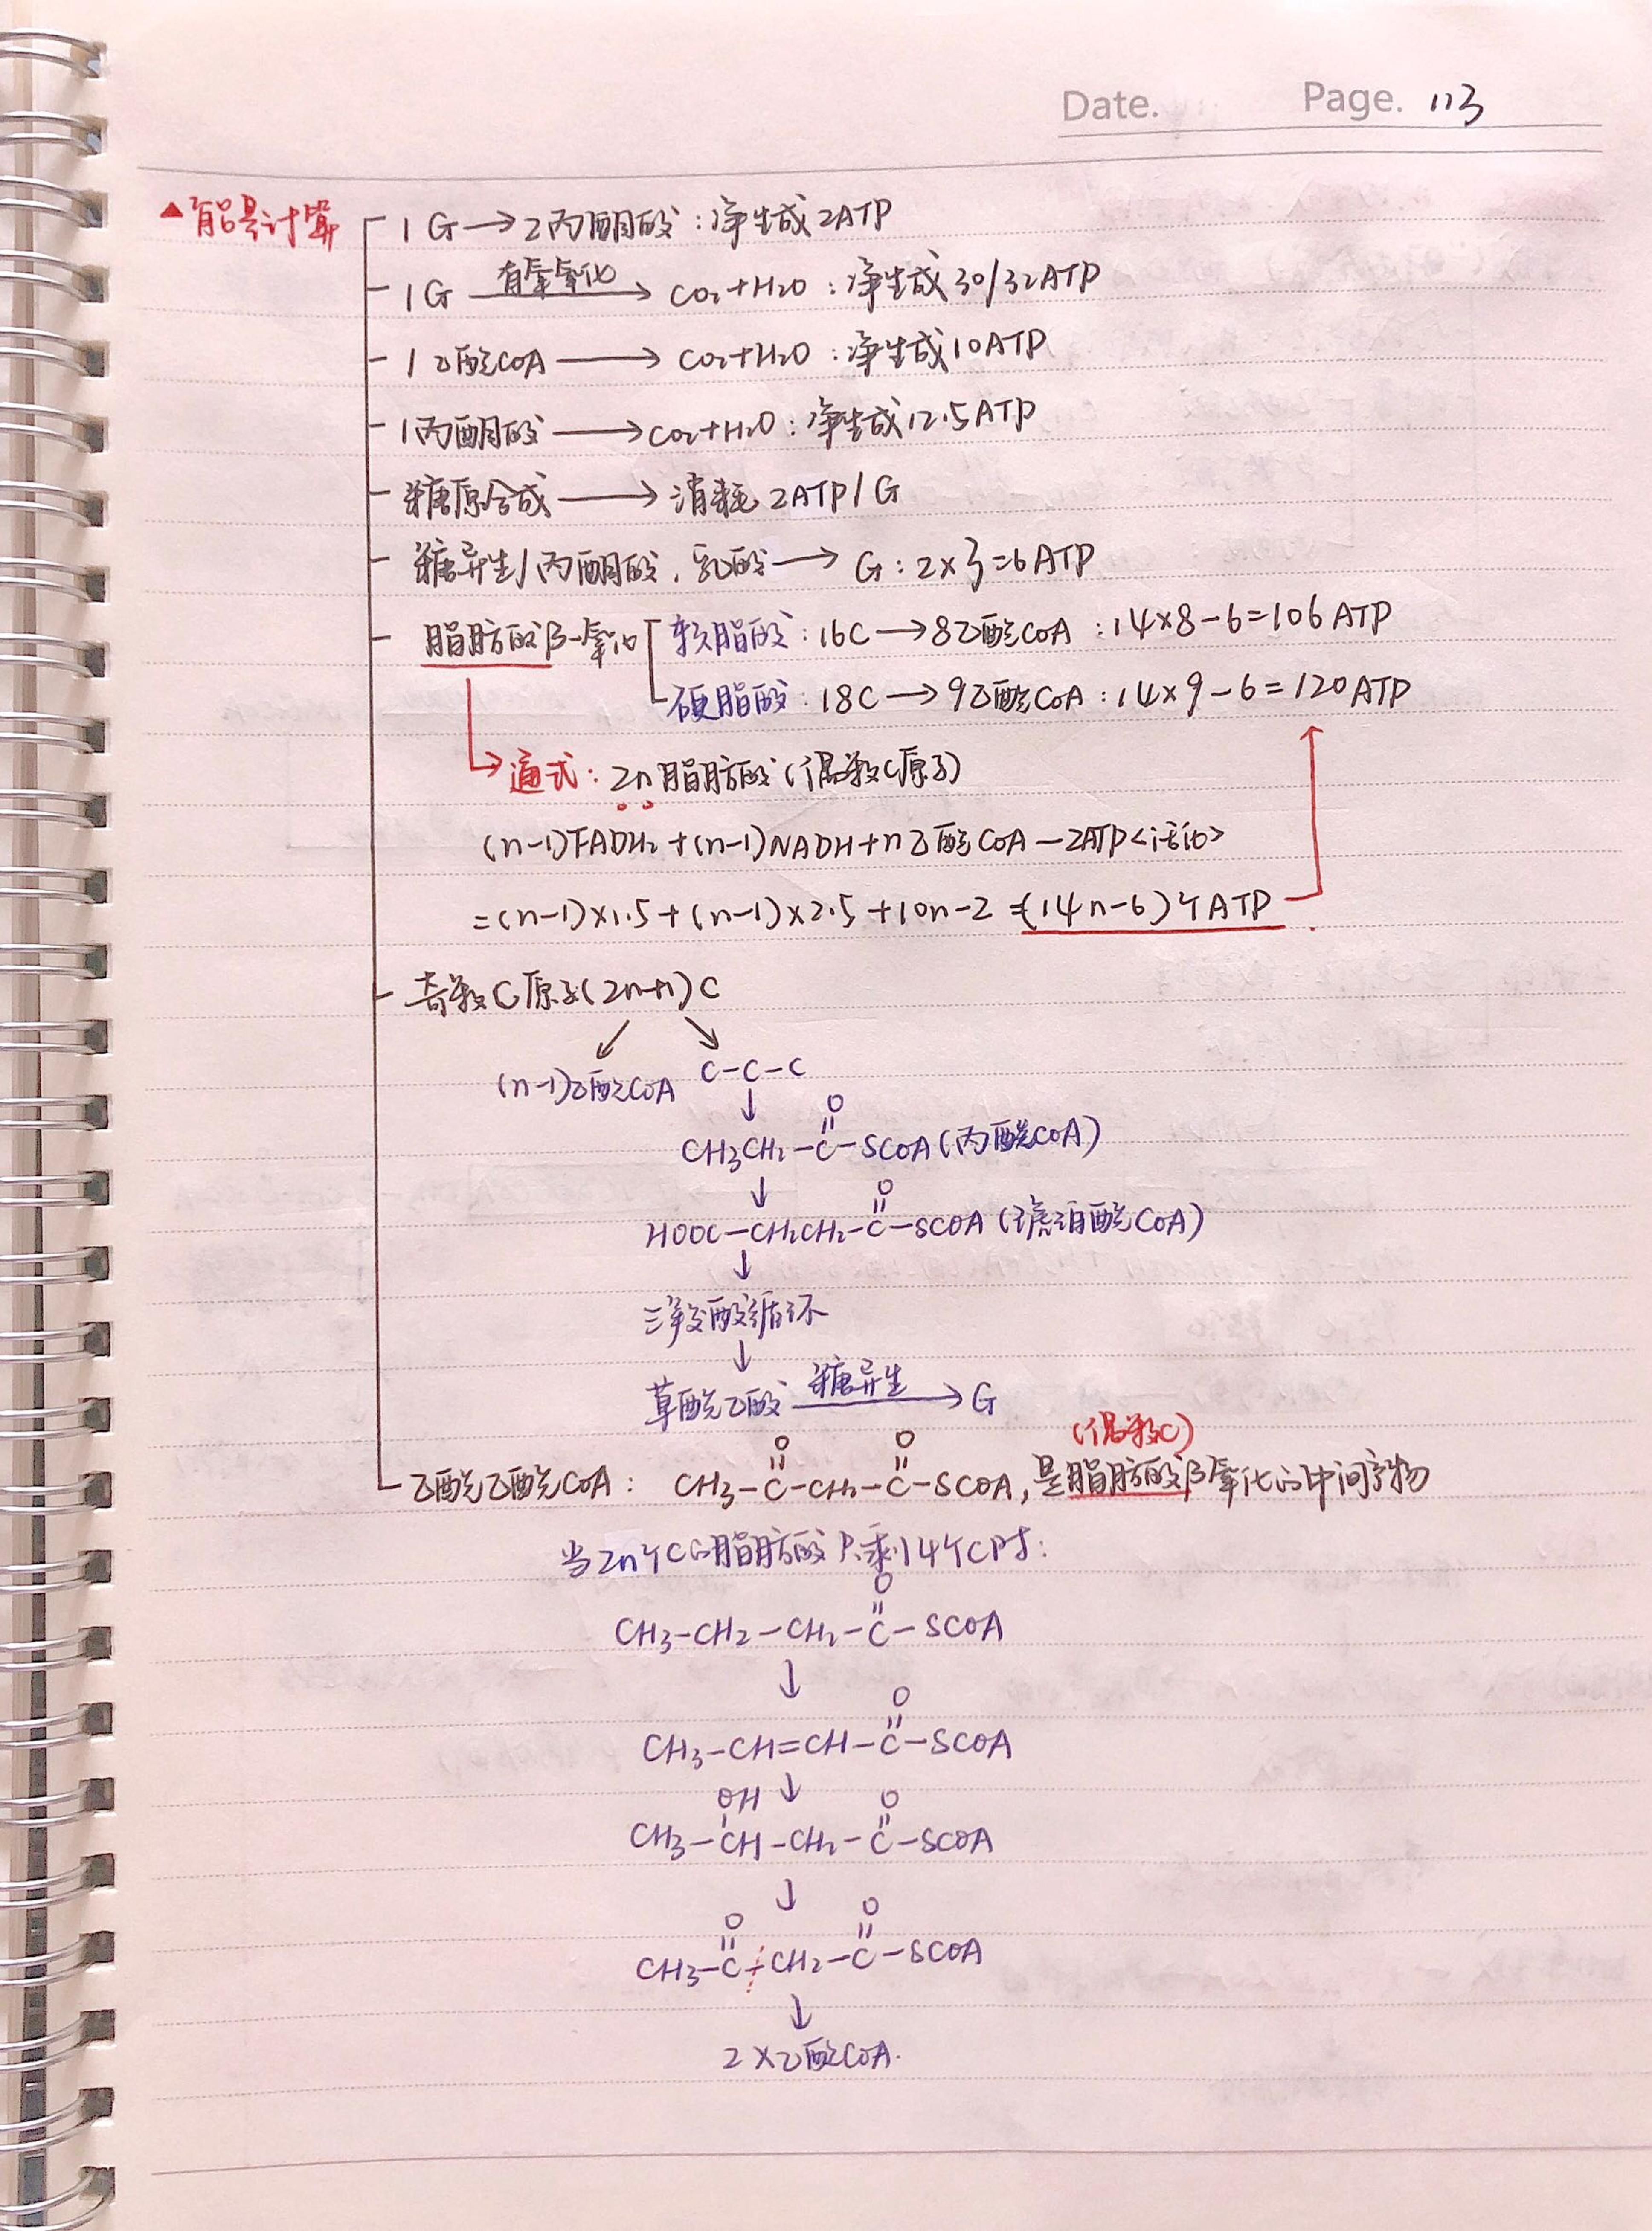 Date. Page. 113
▲能量计算
1G→2丙酮酸:净生成2ATP
1G 有氧氧化→ CO₂+H₂O:净生成30/32ATP
1乙酰COA→CO₂+H₂O:净生成10ATP
1丙酮酸→CO₂+H₂O:净生成12.5ATP
糖原合成→消耗2ATP/G
糖异生/丙酮酸、乳酸→G:2×3=6ATP
脂肪酸β-氧化 软脂酸:16C→8乙酰COA:14×8-6=106ATP
硬脂酸:18C→9乙酰COA:14×9-6=120ATP
→通式:2n脂肪酸(偶数C原子)
(n-1)FADH₂+(n-1)NADH+n乙酰COA-2ATP<活化>
=(n-1)×1.5+(n-1)×2.5+10n-2=(14n-6)个ATP
奇数C原子(2n+1)C
↙ ↘
(n-1)乙酰COA C-C-C
↓ O
CH₃CH₂-C-SCOA(丙酰COA)
↓ O
HOOC-CH₂CH₂-C-SCOA(琥珀酰COA)
↓
三羧酸循环
↓
草酰乙酸 糖异生→G
(偶数C)
O O
乙酰乙酰COA: CH₃-C-CH₂-C-SCOA,是脂肪酸β氧化的中间产物
当2n个C的脂肪酸只剩4个C时:
O
CH₃-CH₂-CH₂-C-SCOA
↓
O
CH₃-CH=CH-C-SCOA
OH ↓ O
CH₃-CH-CH₂-C-SCOA
↓
O O
CH₃-C-CH₂-C-SCOA
↓
2×乙酰COA.